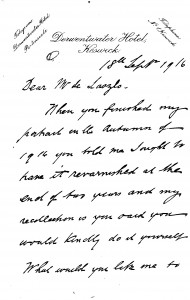 Derwentwater Hotel,
Keswick
18th Sept 1916
Dear Mr de Laszlo.
When you finished my
portrait in the Autumn of
1910 you told me I ought to
have it revarnished at the
end of two years and my
recollection is you said you
would kindly do it yourself
What would you like me to